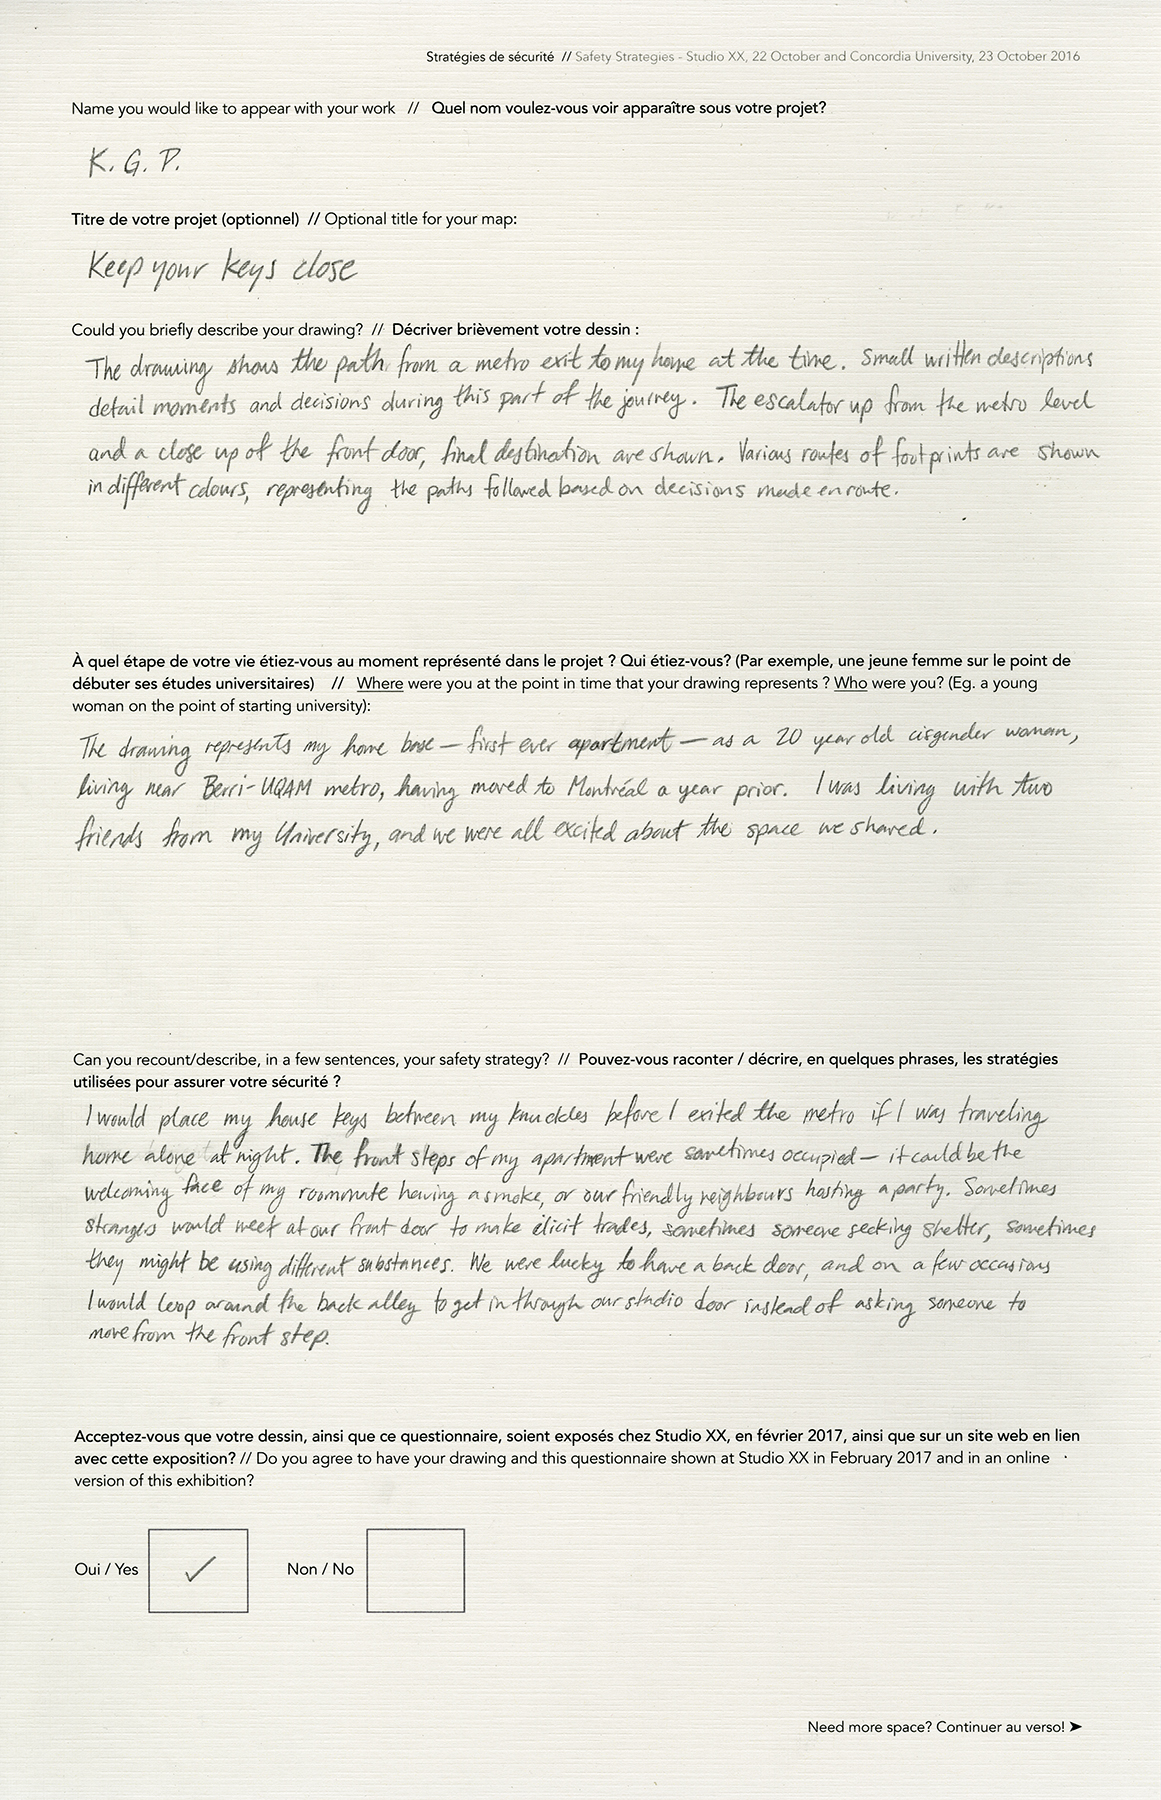 Stratégies de sécurité // Safety Strategies - Studio XX, 22 October and Concordia University, 23 October 2016
Name you would like to appear with your work // Quel nom voulez-vous voir apparaître sous votre projet?
K. G. P.
Titre de votre projet (optionnel) // Optional title for your map:
Keep your keys close
Could you briefly describe your drawing? // Décriver brièvement votre dessin :
The drawing shows the path from a metro exit to my home at the time. Small written descriptions
detail moments and decisions during this part of the journey. The escalator up from the metro level
and a close up of the front door, final destination are shown. Various routes of footprints are shown
in different colours, representing the paths followed based on decisions made en route.
À quel étape de votre vie étiez-vous au moment représenté dans le projet ? Qui étiez-vous? (Par exemple, une jeune femme sur le point de
débuter ses études universitaires) // Where were you at the point in time that your drawing represents ? Who were you? (Eg. a young
woman on the point of starting university):
The drawing represents my home base — first ever apartment — as a 20 year old cisgender woman,
living near Berri-UQAM metro, having moved to Montréal a year prior. I was living with two
friends from my University, and we were all excited about the space we shared.
Can you recount/describe, in a few sentences, your safety strategy? // Pouvez-vous raconter / décrire, en quelques phrases, les stratégies
utilisées pour assurer votre sécurité ?
I would place my house keys between my knuckles before I exited the metro if I was traveling
home alone at night. The front steps of my apartment were sometimes occupied — it could be the
welcoming face of my roommate having a smoke, or our friendly neighbours hosting a party. Sometimes
strangers would meet at our front door to make elicit trades, sometimes someone seeking shelter, sometimes
they might be using different substances. We were lucky to have a back door, and on a few occasions
I would loop around the back alley to get in through our studio door instead of asking someone to
move from the front step.
Acceptez-vous que votre dessin, ainsi que ce questionnaire, soient exposés chez Studio XX, en février 2017, ainsi que sur un site web en lien
avec cette exposition? // Do you agree to have your drawing and this questionnaire shown at Studio XX in February 2017 and in an online
version of this exhibition?
Oui / Yes ✓ Non / No
Need more space? Continuer au verso! ➤